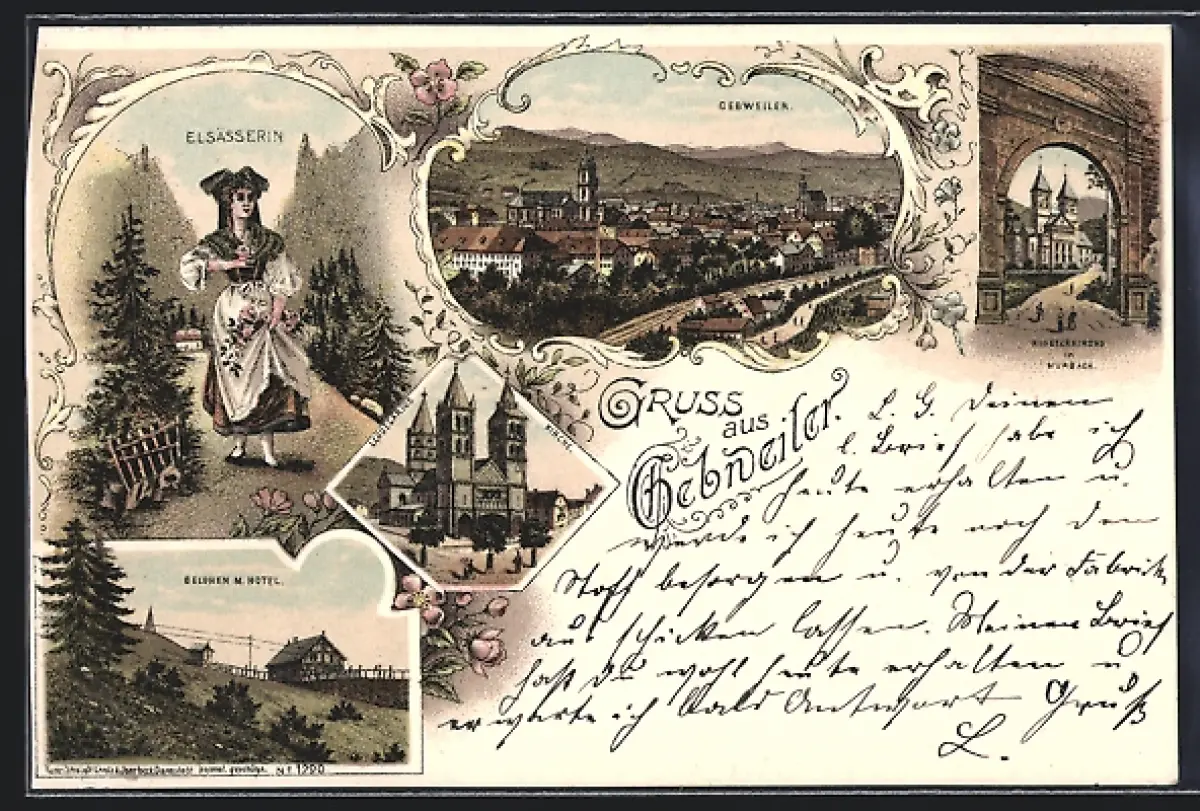 ELSÄSSERIN
GEBWEILER.
KLOSTERKIRCHE
in
MURBACH.
KIRCHE
GRUSS
aus
Gebweiler.
BELCHEN M. HOTEL.
gesetzl. geschützt. Nr. 1200
L. G. Deinen
l. Brief habe ich
heute erhalten u.
werde ich heute noch den
Stoff besorgen u. von der Fabrik
aus schicken lassen. Meinen Brief
hast Du wohl heute erhalten u
erwarte ich bald Antwort Gruß
L.